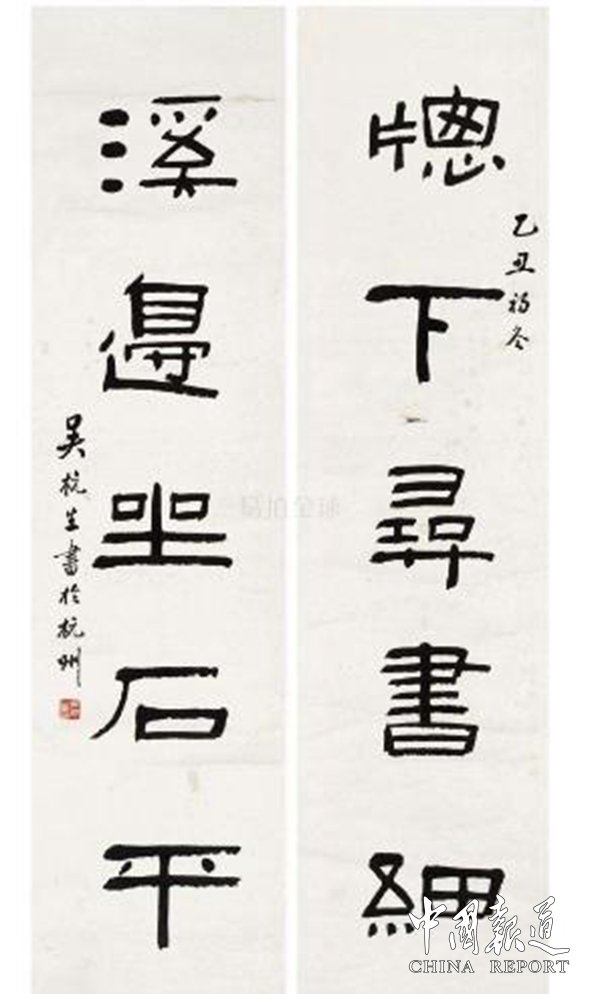 牕下尋書細
乙丑初冬
溪邊坐石平
吴杭生書於杭州
易拍全球
中国报道
CHINA REPORT